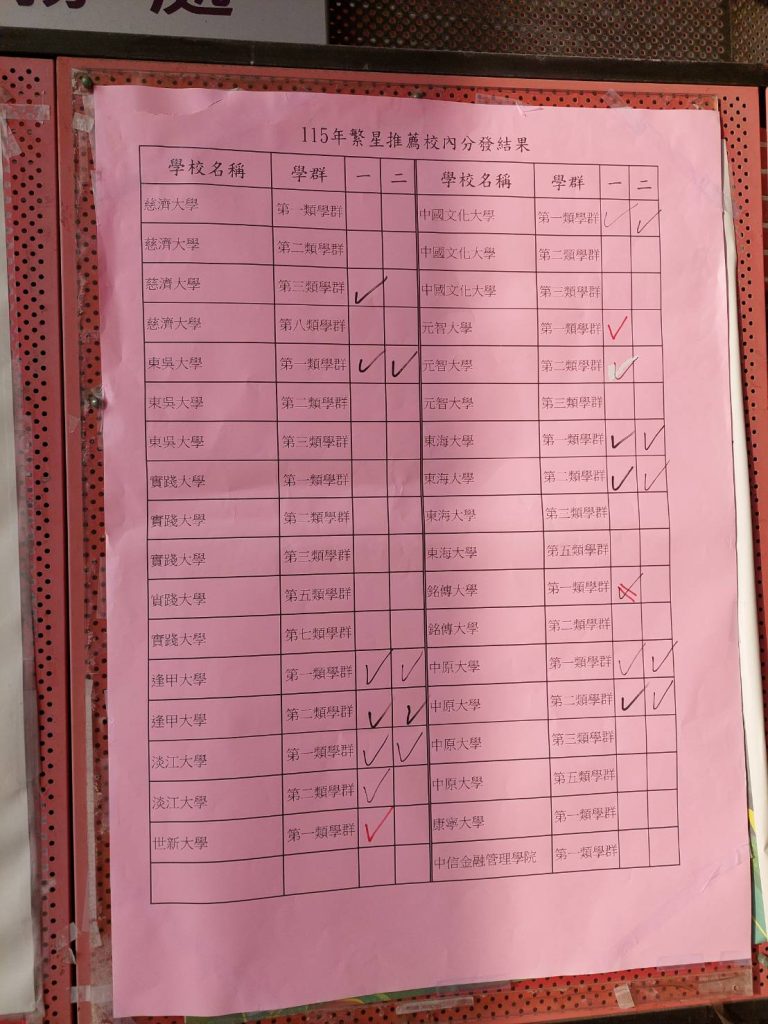 處
115年繁星推薦校內分發結果
學校名稱 學群 一 二 學校名稱 學群 一 二
慈濟大學 第一類學群 中國文化大學 第一類學群 ✓ ✓
慈濟大學 第二類學群 中國文化大學 第二類學群
慈濟大學 第三類學群 ✓ 中國文化大學 第三類學群
慈濟大學 第八類學群 元智大學 第一類學群 ✓
東吳大學 第一類學群 ✓ ✓ 元智大學 第二類學群 ✓
東吳大學 第二類學群 元智大學 第三類學群
東吳大學 第三類學群 東海大學 第一類學群 ✓ ✓
實踐大學 第一類學群 東海大學 第二類學群 ✓ ✓
實踐大學 第二類學群 東海大學 第三類學群
實踐大學 第三類學群 東海大學 第五類學群
實踐大學 第五類學群 銘傳大學 第一類學群 ✓
實踐大學 第七類學群 銘傳大學 第二類學群
逢甲大學 第一類學群 ✓ ✓ 中原大學 第一類學群 ✓ ✓
逢甲大學 第二類學群 ✓ ✓ 中原大學 第二類學群 ✓ ✓
淡江大學 第一類學群 ✓ ✓ 中原大學 第三類學群
淡江大學 第二類學群 ✓ 中原大學 第五類學群
世新大學 第一類學群 ✓ 康寧大學 第一類學群
中信金融管理學院 第一類學群